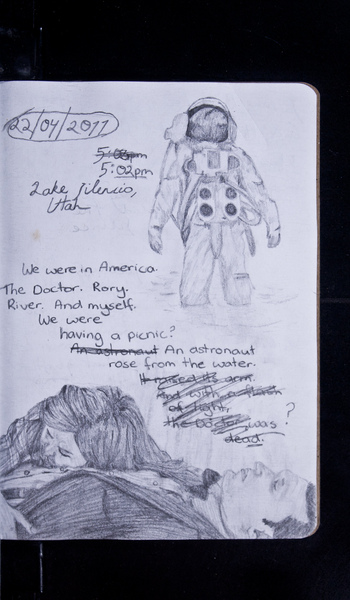 22/04/2011
5:02pm
5:02pm
Lake Silencio,
Utah
We were in America.
The Doctor. Rory.
River. And myself.
We were
having a picnic?
An astronaut An astronaut
rose from the water.
It raised its arm.
And with a flash
of light,
the Doctor was ?
dead.